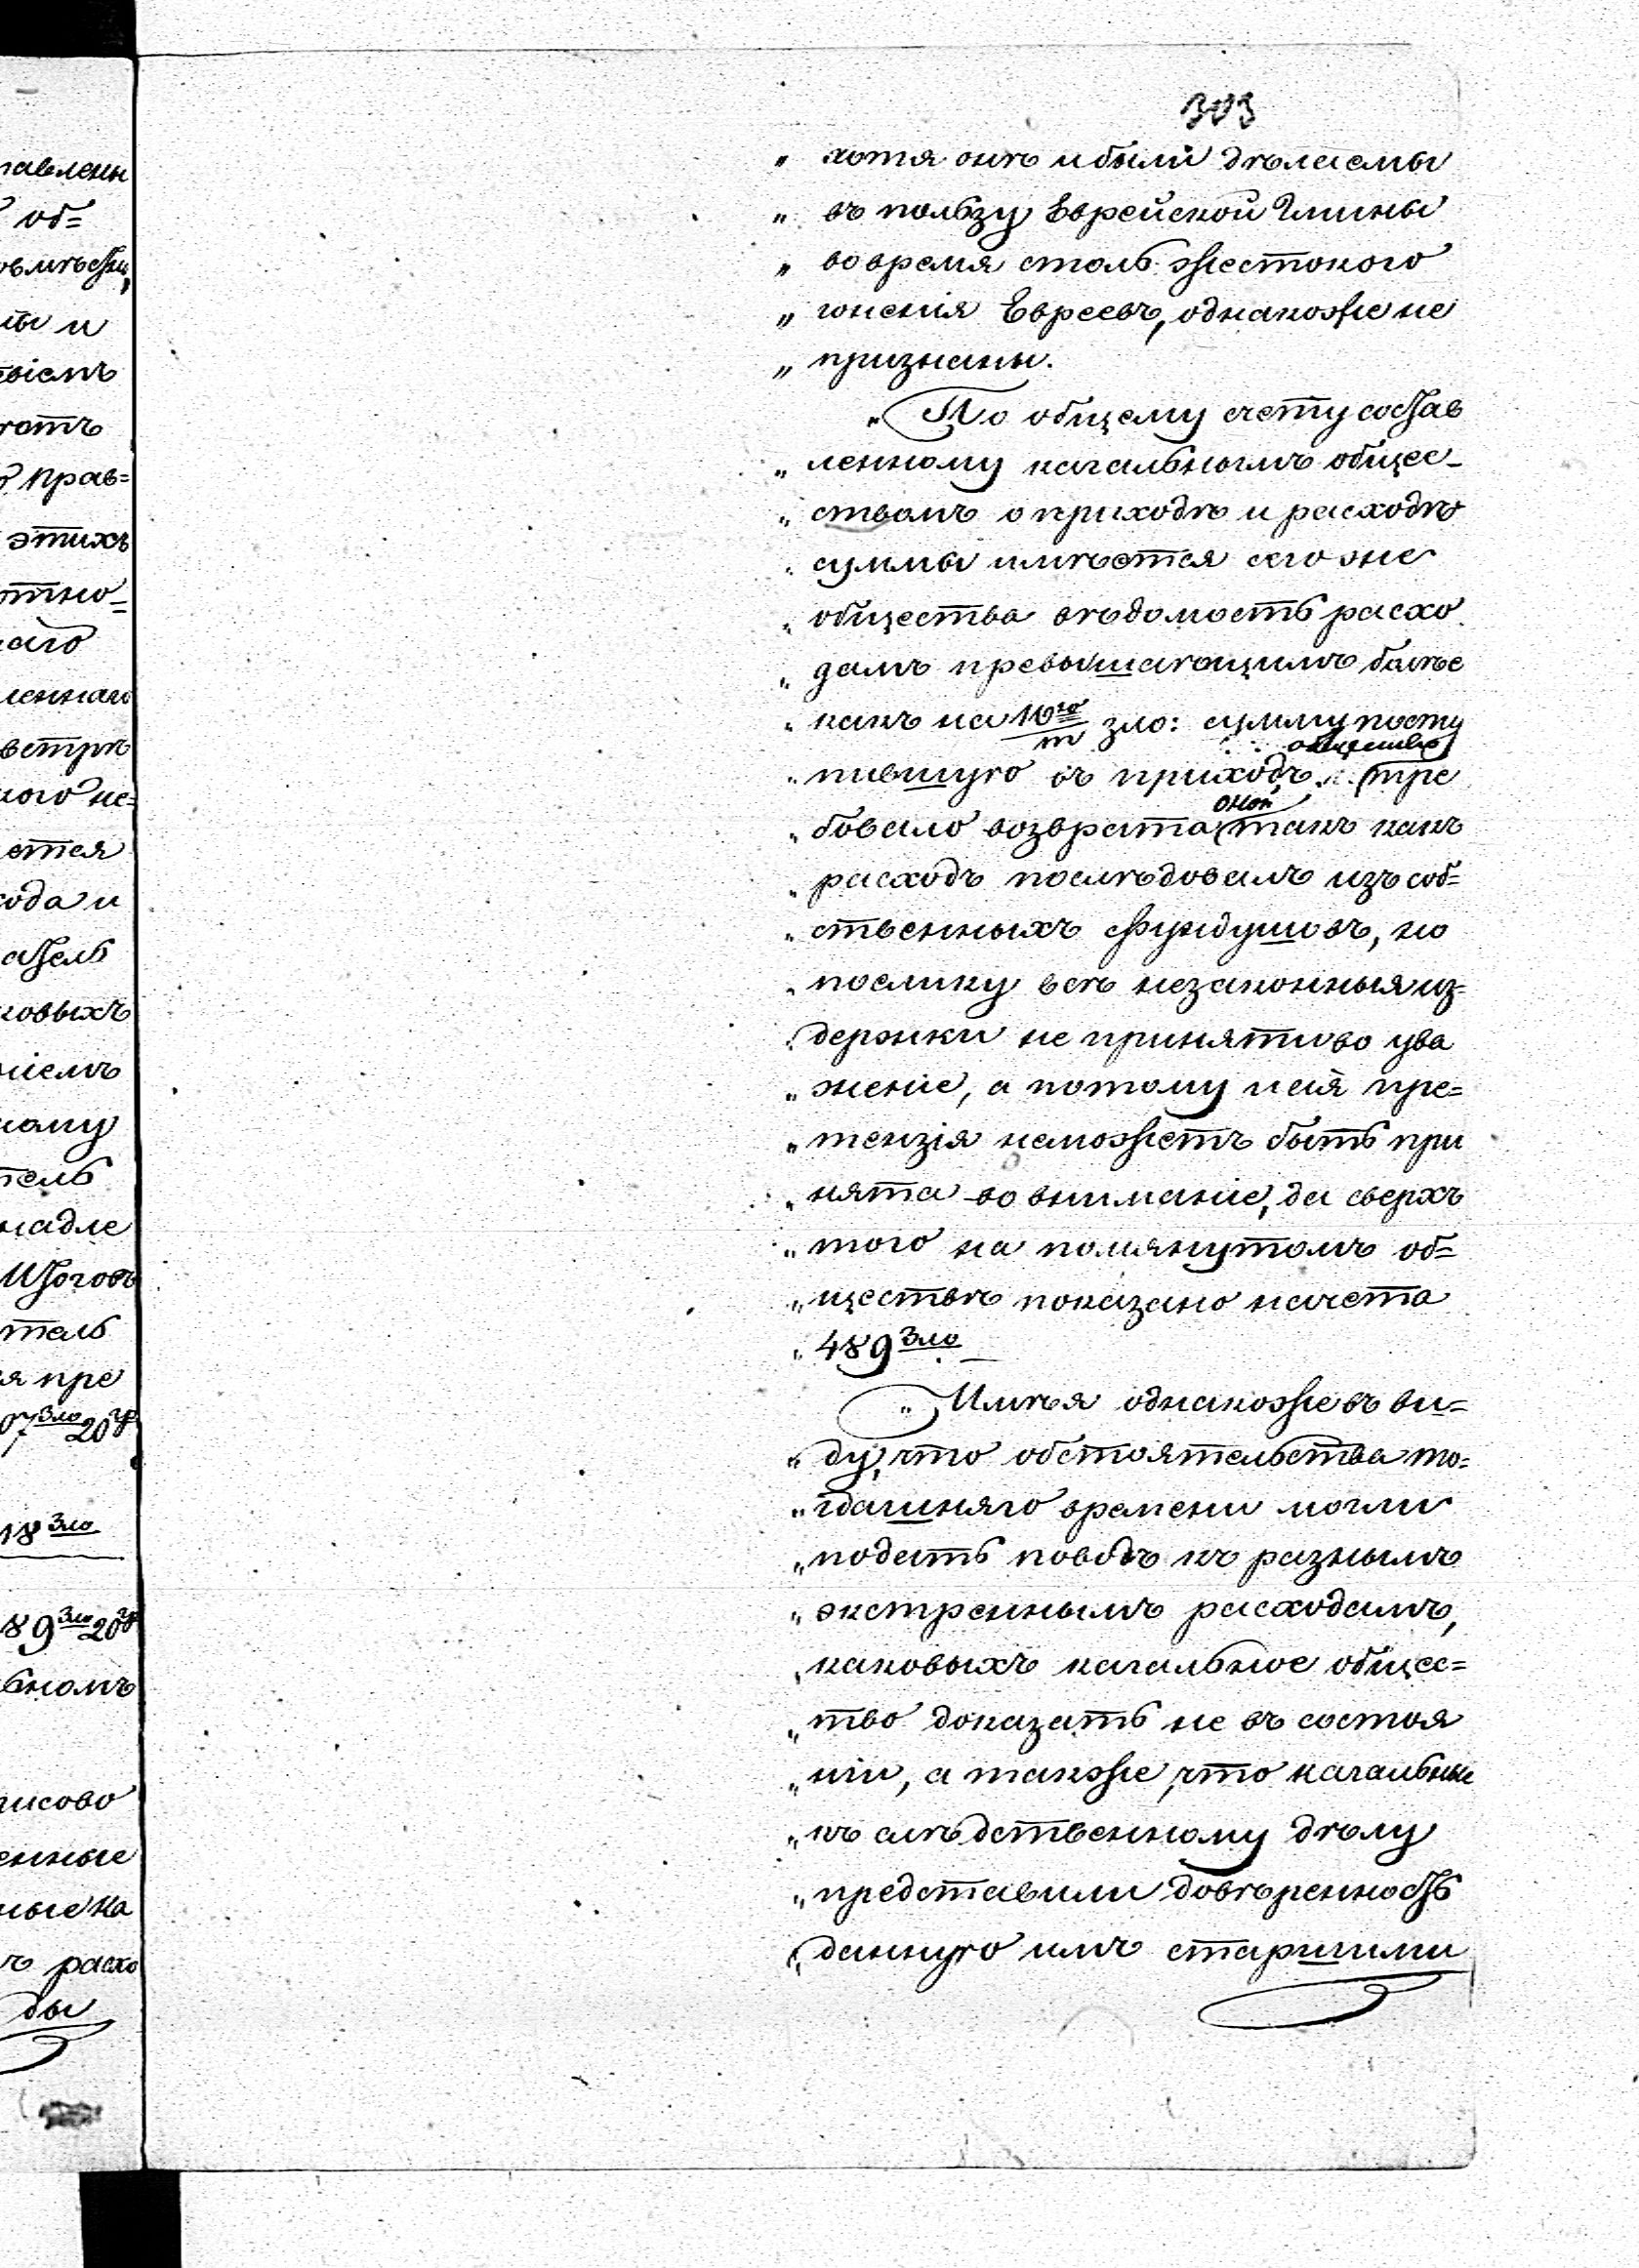 303
„ хотя онѣ и были дѣлаемы
„ въ пользу Еврейской Гмины
„ во время столь жестокого
„ гоненія Евреевъ, однакоже не
„ признаны.
„ По общему счету состав
„ ленному кагальнымъ обще-
„ ствомъ о приходѣ и расходѣ
„ суммы имѣется сего же
„ общества вѣдомость расхо
„ дамъ превышающимъ болѣе
„ какъ на 10го/т зло: сумму посту
общество
„ пившую въ приходъ, тре
оной
„ бовало возврата такъ какъ
„ расходъ послѣдовалъ изъ соб=
„ ственныхъ фундушовъ, но
„ поелику всѣ незаконныя из=
„ держки не приняти во ува
„ женіе, а потому и сія пре=
„ тензія неможетъ быть при
„ нята во вниманіе, да сверхъ
„ того на помянутомъ об=
„ ществѣ показано начета
„ 489 Зло
„ Имѣя однакоже въ ви=
„ ду, что обстоятельства то=
„ гдашняго времени могли
„ подать поводъ къ разнымъ
„ экстреннымъ расходамъ,
„ каковыхъ кагальное общес=
„ тво доказать не въ состоя
„ ніи, а также, что кагальные
„ къ слѣдственному дѣлу
„ представили довѣренность
„ данную имъ старшими
тавлены
об=
ты и
ратъ
прав=
этихъ
отно=
наго
леннаго
ного не=
ется
хода и
атель
ковыхъ
ніемъ
ному
тель
надле
Итогов
тель
я пре
07 Зло 20 гр
18 Зло
89 Зло 20 гр
ьномъ
енные
ные ка
ъ расхо
ды